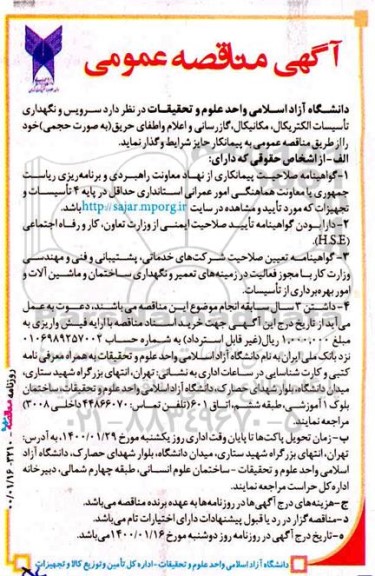 آگهی مناقصه عمومی
دانشگاه آزاد اسلامی واحد علوم و تحقیقات در نظر دارد سرویس و نگهداری
تأسیسات الکتریکال، مکانیکال، گازرسانی و اعلام واطفای حریق(به صورت حجمی)خود
را از طریق مناقصه عمومی به پیمانکار حایز شرایط و گذار نماید.
الف - از اشخاص حقوقی که دارای:
۱- گواهینامه صلاحیت پیمانکاری از نهاد معاونت راهبردی و برنامه‌ریزی ریاست
جمهوری یا معاونت هماهنگی امور عمرانی استانداری حداقل در پایه ۴ تأسیسات و
تجهیزات که مورد تأیید و مشاهده در سایت http://sajar.mporg.ir باشد.
۲- دارا بودن گواهینامه تأیید صلاحیت ایمنی از وزارت تعاون، کار و رفاه اجتماعی
(H.S.E)
۳- گواهینامه تعیین صلاحیت شرکت‌های خدماتی، پشتیبانی و فنی و مهندسی
وزارت کار با مجوز فعالیت در زمینه‌های تعمیر و نگهداری ساختمان و ماشین آلات و
امور بهره‌برداری از تأسیسات.
۴- داشتن ۲ سال سابقه انجام موضوع این مناقصه می باشند، دعوت به عمل
می آید از تاریخ درج این آگهی جهت خرید اسناد مناقصه با ارایه فیش واریزی به
مبلغ ۱.۰۰۰.۰۰۰ ریال (غیر قابل استرداد) به شماره حساب ۰۱۰۶۹۸۹۲۵۷۰۰۲
نزد بانک ملی ایران به نام دانشگاه آزاد اسلامی واحد علوم و تحقیقات به همراه معرفی نامه
کتبی و کارت شناسایی در ساعات اداری به نشانی: تهران، انتهای بزرگراه شهید ستاری،
میدان دانشگاه، بلوار شهدای حصارک، دانشگاه آزاد اسلامی واحد علوم و تحقیقات، ساختمان
بلوک ۱ آموزشی، طبقه ششم، اتاق ۶۰۱ (تلفن تماس: ۴۴۸۶۶۰۷۰ داخلی ۳۰۰۸)
مراجعه نمایند.
ب- زمان تحویل پاکت‌ها تا پایان وقت اداری روز یکشنبه مورخ ۱۴۰۰/۰۱/۲۹، به آدرس:
تهران، انتهای بزرگراه شهید ستاری، میدان دانشگاه، بلوار شهدای حصارک، دانشگاه آزاد
اسلامی واحد علوم و تحقیقات - ساختمان علوم انسانی، طبقه چهارم شمالی، دبیرخانه
اداره کل حراست مراجعه نمایند.
ج- هزینه‌های درج آگهی ها در روزنامه‌ها به عهده برنده مناقصه می‌باشد.
د- مناقصه گزار در رد یا قبول پیشنهادات دارای اختیارات تام می‌باشد.
ه- تاریخ درج آگهی در روزنامه روز دوشنبه مورخ ۱۴۰۰/۰۱/۱۶ می‌باشد.
دانشگاه آزاد اسلامی واحد علوم و تحقیقات - اداره کل تأمین و توزیع کالا و تجهیزات
روزنامه مناقصه ۳۲۱۰ - ۰۰/۰۱/۱۶
۰۲۱-۸۸۳۴۹۶۷۰-۵